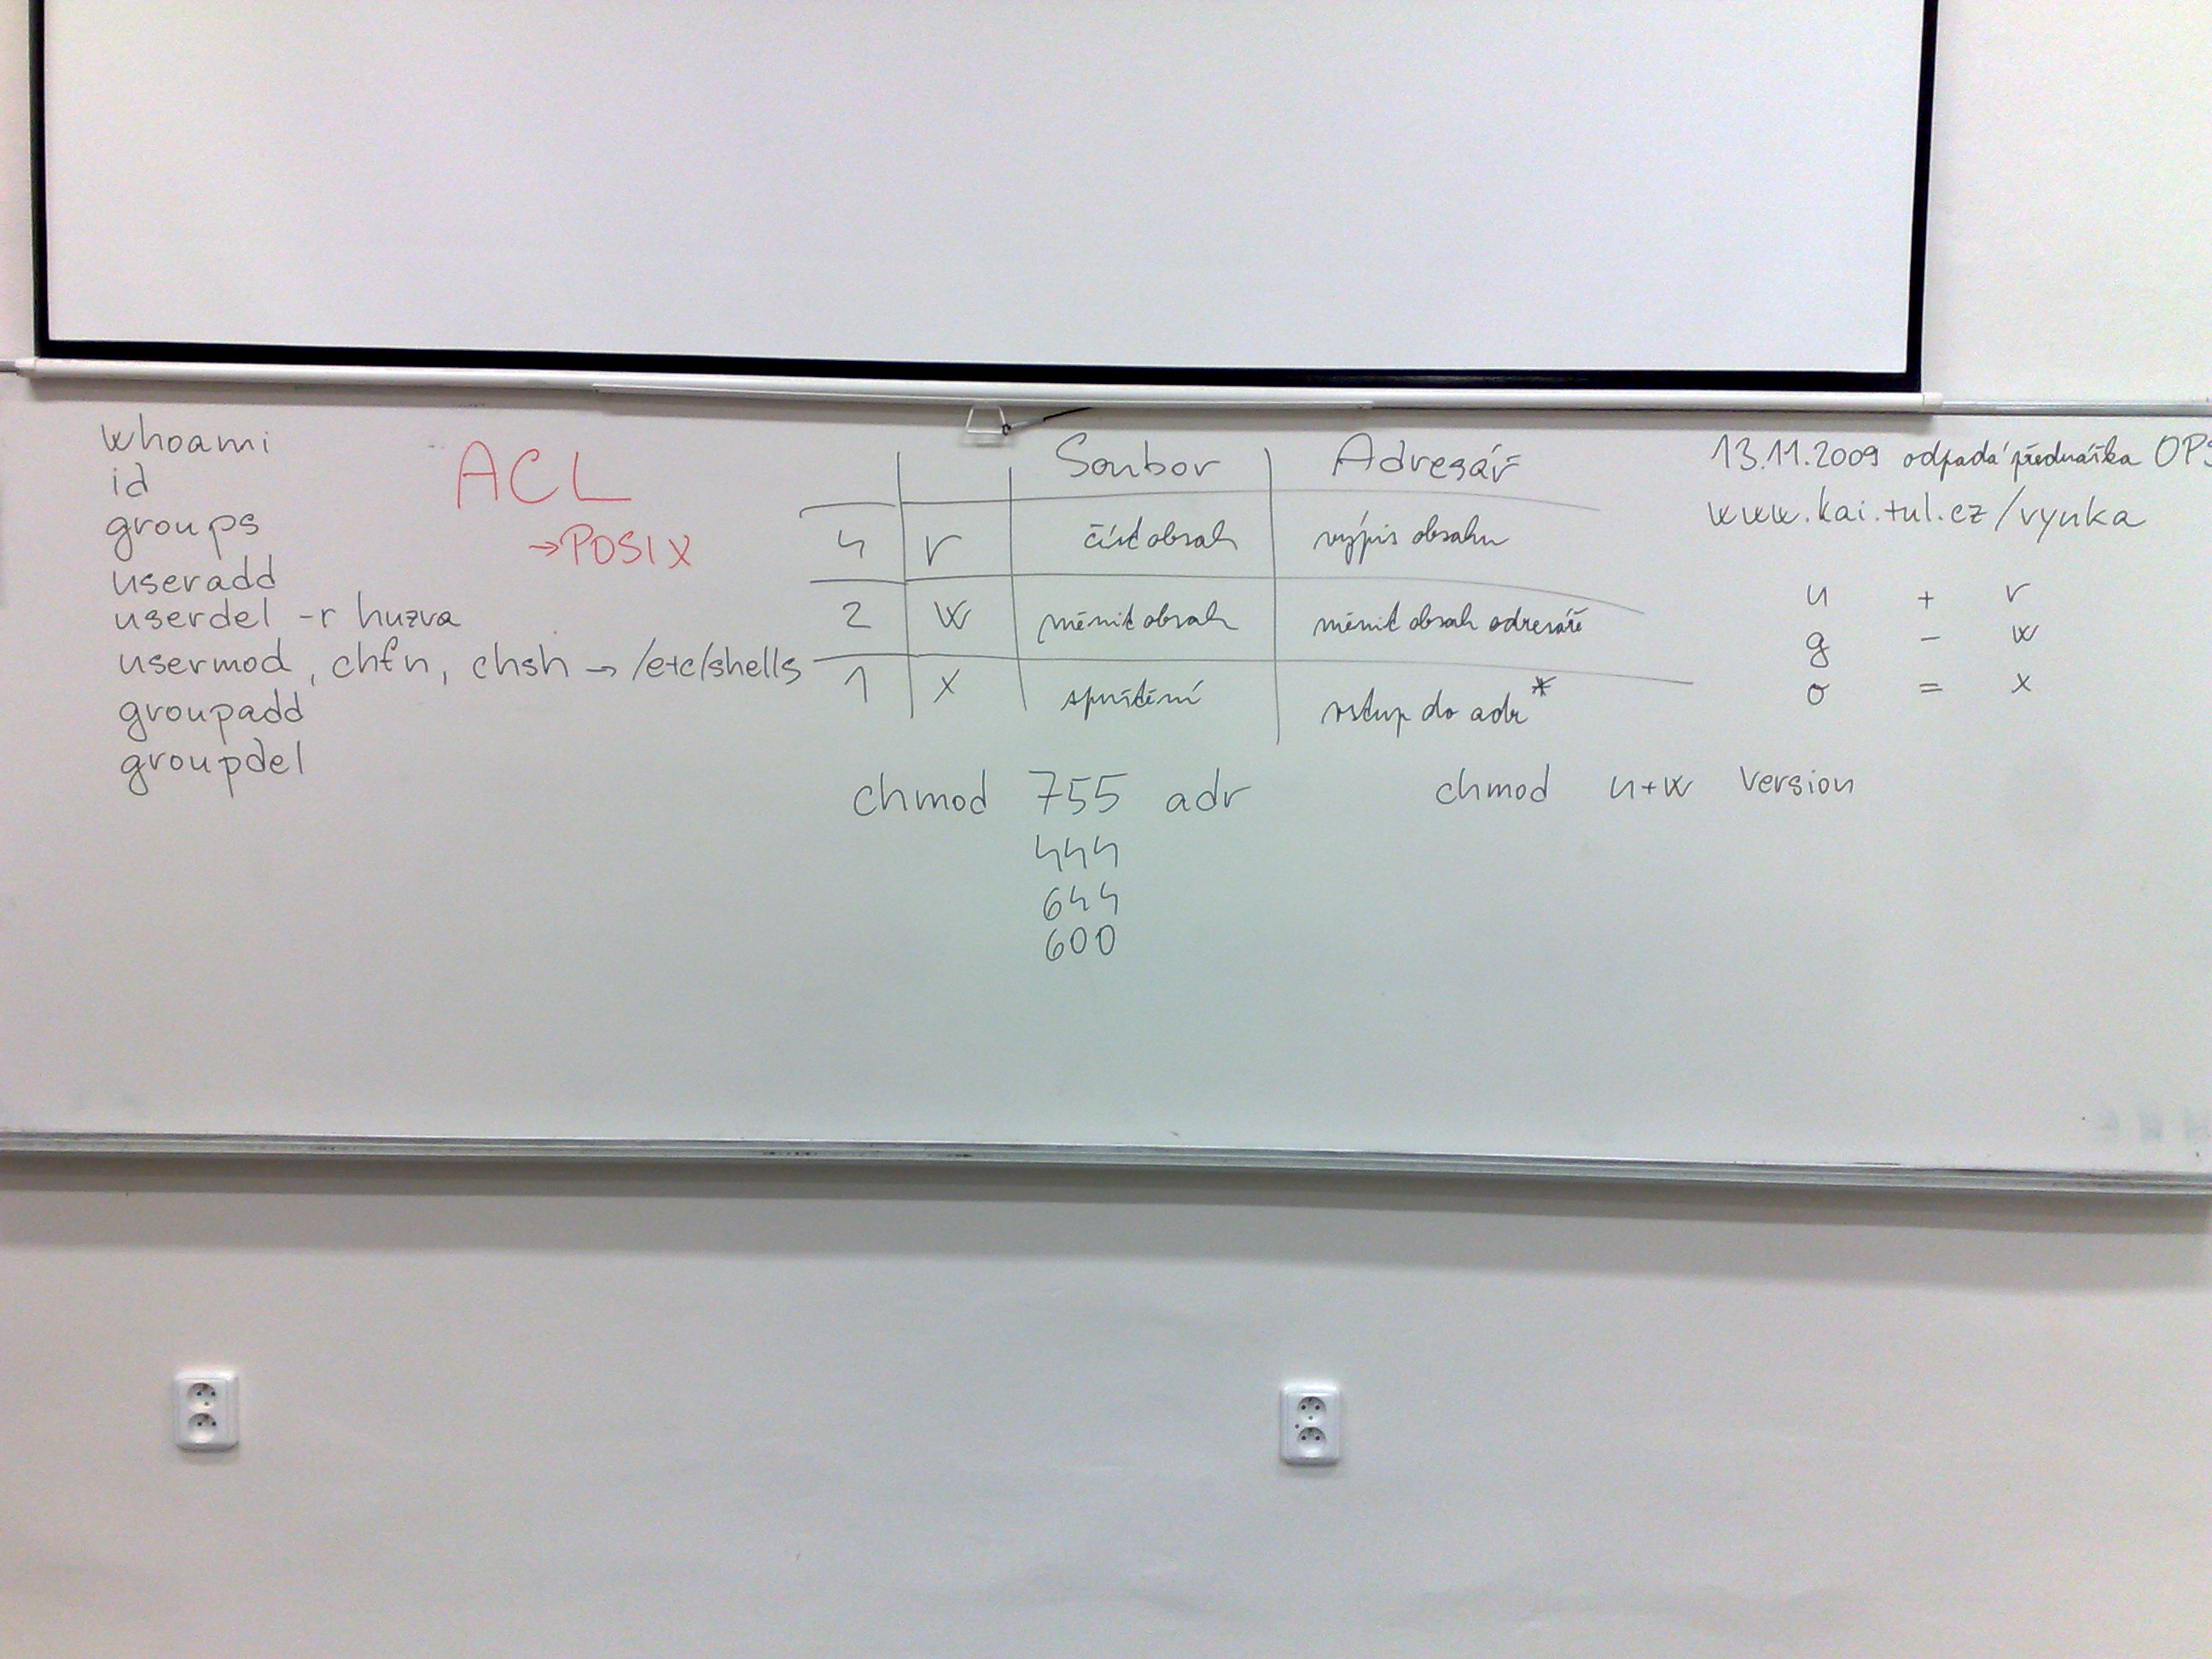 whoami
id
groups
useradd
userdel -r huzva
usermod, chfn, chsh → /etc/shells
groupadd
groupdel
ACL
→POSIX
Soubor Adresář
4 r číst obsah výpis obsahu
2 w měnit obsah měnit obsah adresáře
1 x spuštění vstup do adr*
chmod 755 adr
444
644
600
13.11.2009 odpadá přednáška OPS
www.kai.tul.cz/vyuka
u + r
g - w
o = x
chmod u+w version